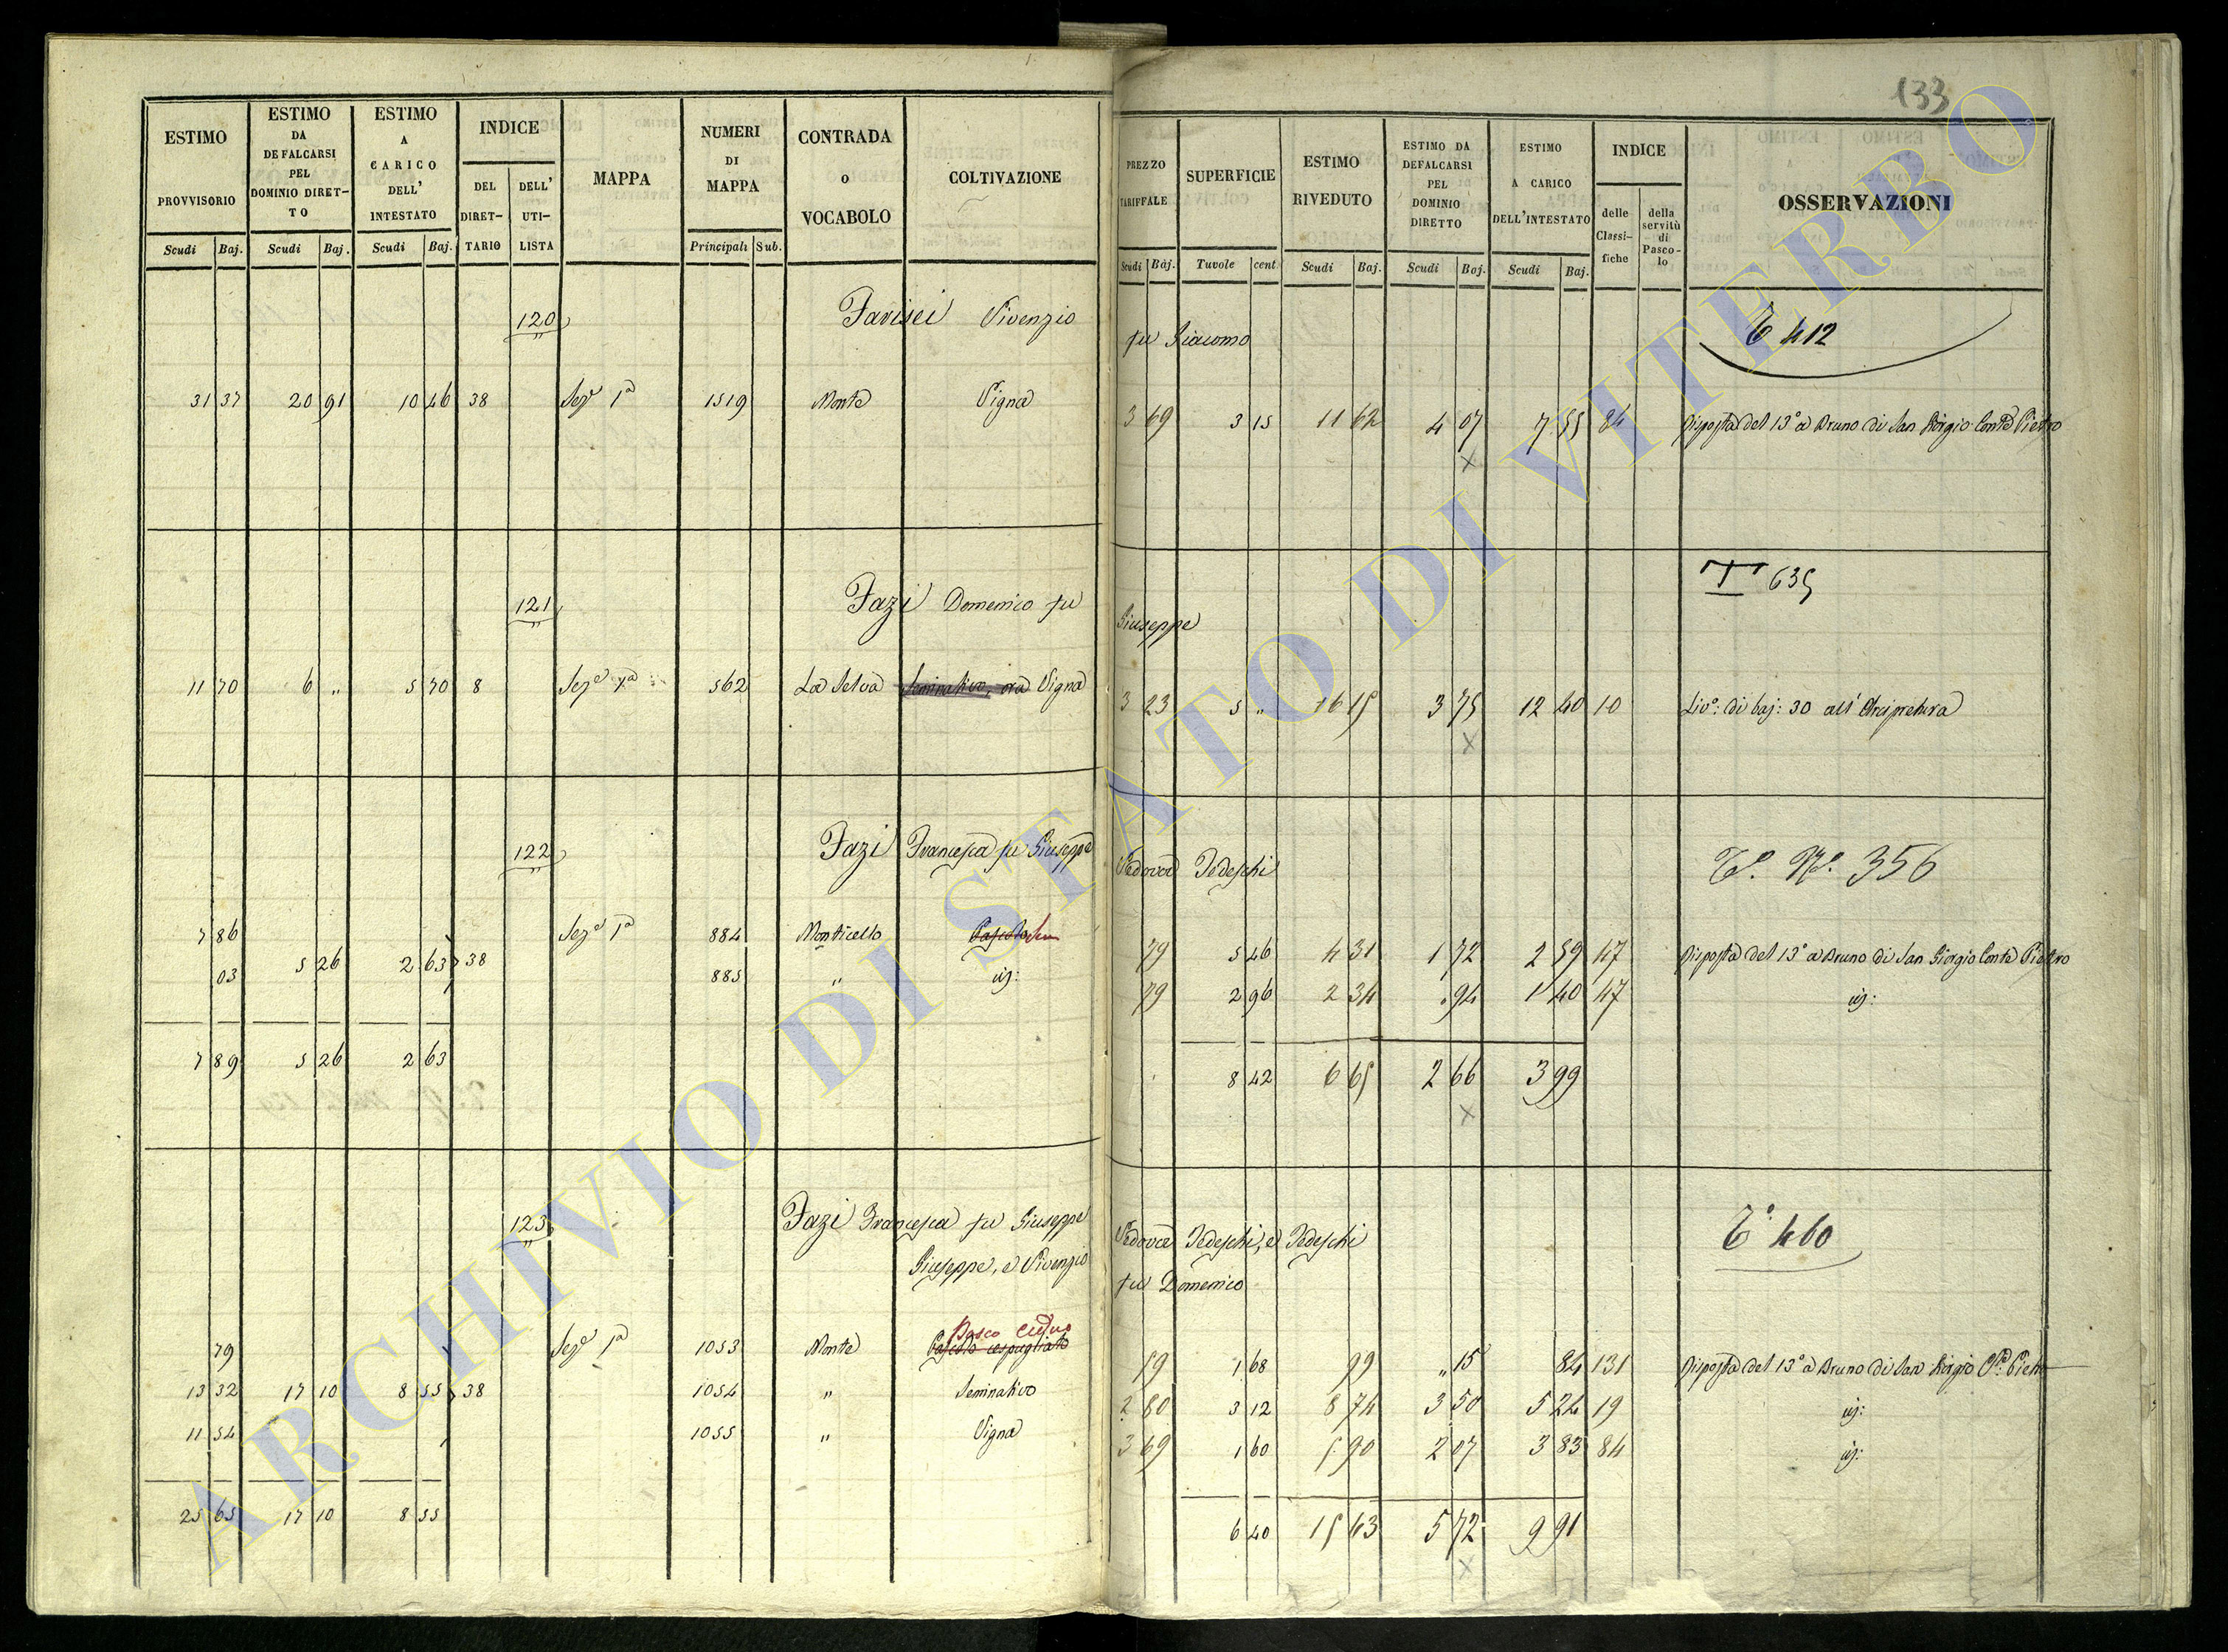 133
ESTIMO PROVVISORIO
ESTIMO DA DEFALCARSI PEL DOMINIO DIRETTO
ESTIMO A CARICO DELL' INTESTATO
INDICE
DEL DIRETTARIO
DELL' UTILISTA
MAPPA
NUMERI DI MAPPA
CONTRADA O VOCABOLO
COLTIVAZIONE
Scudi Baj. Scudi Baj. Scudi Baj. Principali Sub.
PREZZO TARIFFALE
SUPERFICIE
ESTIMO RIVEDUTO
ESTIMO DA DEFALCARSI PEL DOMINIO DIRETTO
ESTIMO A CARICO DELL'INTESTATO
INDICE
delle Classifiche
della servitù di Pascolo
OSSERVAZIONI
Scudi Baj. Tavole cent. Scudi Baj. Scudi Baj. Scudi Baj.
120 Farisei Vivenzio fu Giacomo
T 412
31 37 20 91 10 46 38 Sez.e 1a 1519 Monte Vigna 3 69 3 15 11 62 4 07 7 55 84 Risposta del 13° a Bruno di San Giorgio Conte Pietro
x
121 Fazi Domenico fu Giuseppe
T 635
11 70 6 " 5 70 8 Sez.e 1a 562 La Selva Seminativo, ora Vigna 3 23 5 " 16 15 3 75 12 40 10 Liv°: di baj: 30 all' Arcipretura
x
122 Fazi Francesca fu Giuseppe Vedova Tedeschi
T.° N.° 356
7 86 Sez.e 1a 884 Monticello Pascolo Sem 79 5 46 4 31 1 72 2 59 47 Risposta del 13° a Bruno di San Giorgio Conte Pietro
5 26 2 63 38
03 885 " id: 79 2 96 2 34 " 94 1 40 47 id:
7 89 5 26 2 63 8 42 6 65 2 66 3 99
x
123 Fazi Francesca fu Giuseppe Vedova Tedeschi, e Tedeschi
Giuseppe, e Vivenzio fu Domenico
T° 460
Bosco ceduo
79 Sez.e 1a 1053 Monte Pascolo cespugliato 59 1 68 99 " 15 84 131 Risposta del 13° a Bruno di San Giorgio C.e Pietro
13 32 17 10 8 55 38 1054 " Seminativo 2 80 3 12 8 74 3 50 5 24 19 id:
11 54 1055 " Vigna 3 69 1 60 5 90 2 07 3 83 84 id:
25 65 17 10 8 55 6 40 15 63 5 72 9 91
x
ARCHIVIO DI STATO DI VITERBO